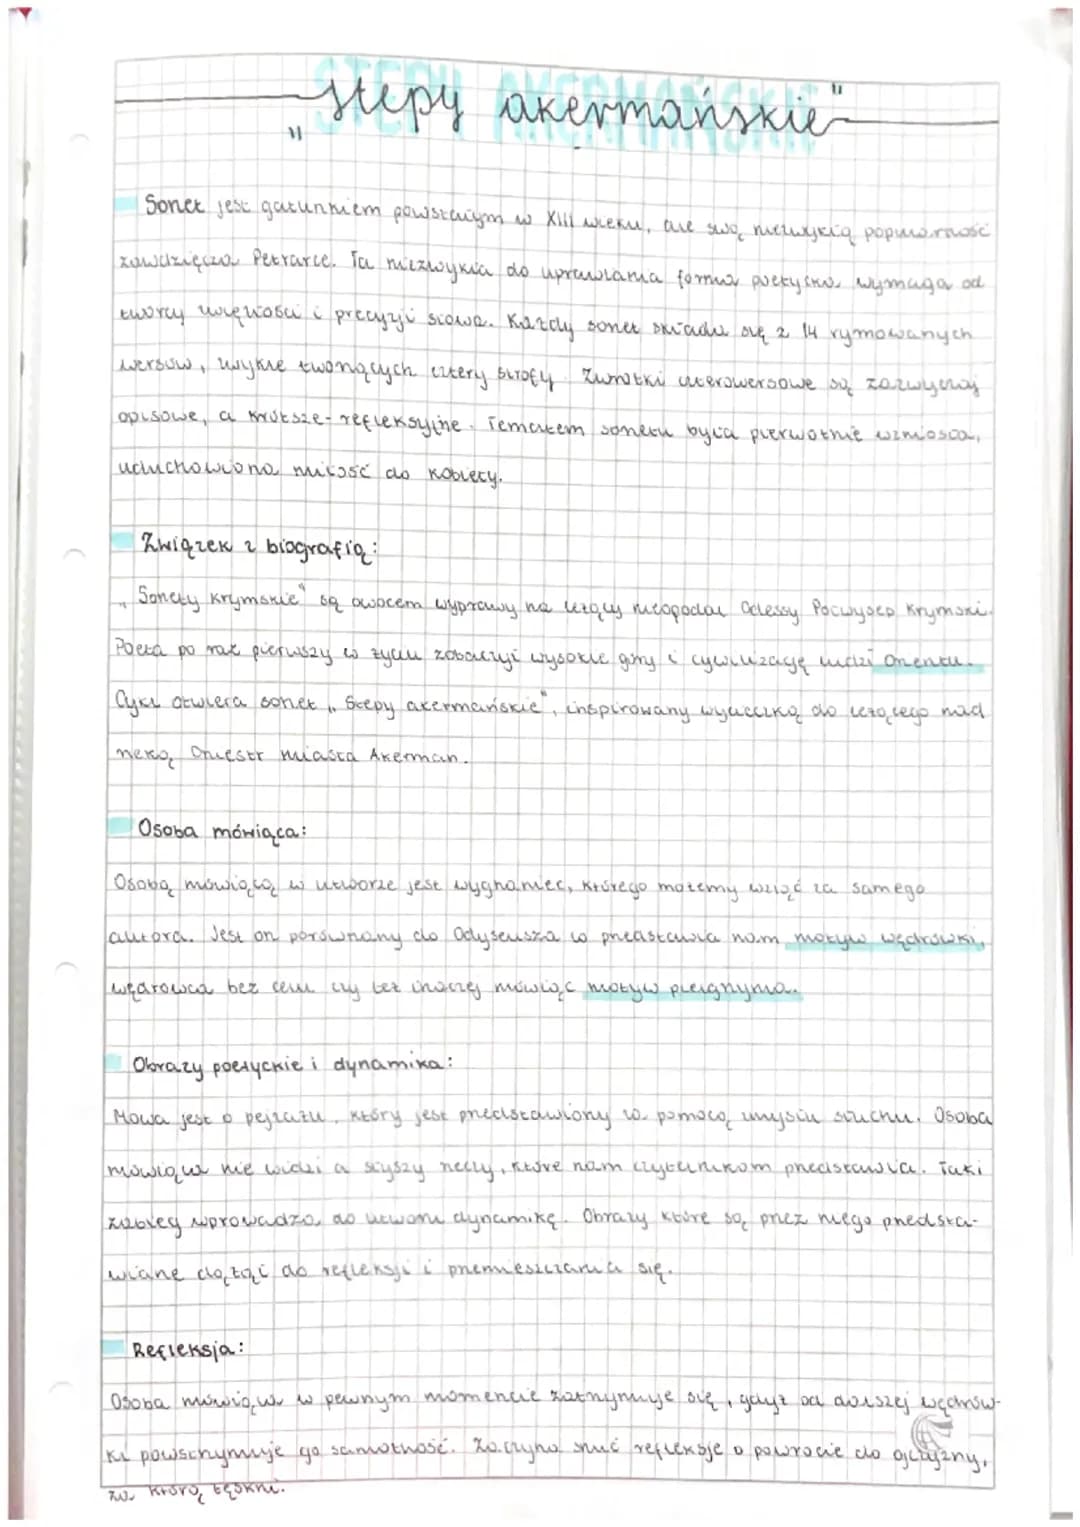 STEPY AKERMAŃSKIE
"stepy akermańskie"
Sonet jest gatunkiem powstałym w XIII wieku, ale swą niezwykłą popularność
zawdzięcza Petrarce. Ta niezwykła do uprawiania forma poetycka wymaga od
twórcy zwięzłości i precyzji słowa. Każdy sonet składa się z 14 rymowanych
wersów, zwykle tworzących cztery strofy. Zwrotki czterowersowe są zazwyczaj
opisowe, a krótsze - refleksyjne. Tematem sonetu była pierwotnie wzniosła,
uduchowiona miłość do kobiety.
Związek z biografią:
"Sonety Krymskie" są owocem wyprawy na leżący nieopodal Odessy Półwysep Krymski.
Poeta po raz pierwszy w życiu zobaczył wysokie góry i cywilizację ludzi Orientu.
Cykl otwiera sonet "Stepy akermańskie", inspirowany wycieczką do leżącego nad
rzeką Dniestr miasta Akerman.
Osoba mówiąca:
Osobą mówiącą w utworze jest wygnaniec, którego możemy wziąć za samego
autora. Jest on porównany do Odyseusza co przedstawia nam motyw wędrówki,
wędrowca bez celu czy też inaczej mówiąc motyw pielgrzyma.
Obrazy poetyckie i dynamika:
Mowa jest o pejzażu, który jest przedstawiony za pomocą zmysłu słuchu. Osoba
mówiąca nie widzi a słyszy rzeczy, które nam czytelnikom przedstawia. Taki
zabieg wprowadza do utworu dynamikę. Obrazy które są przez niego przedsta-
wiane dążąi do refleksji i przemieszczania się.
Refleksja:
Osoba mówiąca w pewnym momencie zatrzymuje się, gdyż od dalszej wędrów-
ki powstrzymuje go samotność. Zaczyna snuć refleksje o powrocie do ojczyzny,
za którą tęskni.